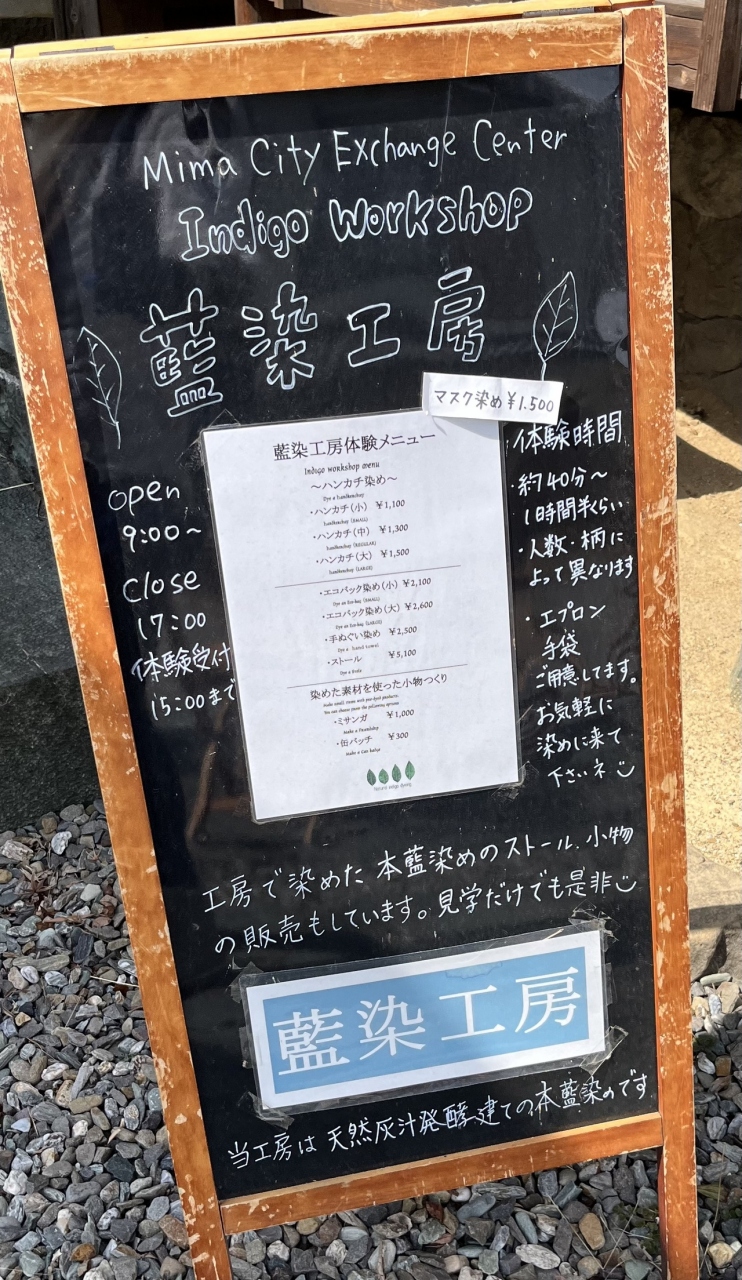 Mima City Exchange Center
Indigo Workshop
藍染工房
マスク染め ¥1.500
open
9:00~
close
17:00
体験受付
15:00まで
藍染工房体験メニュー
Indigo workshop menu
~ハンカチ染め~
Dye a handkerchief
・ハンカチ(小) ¥1,100
handkerchief (SMALL)
・ハンカチ(中) ¥1,300
handkerchief (REGULAR)
・ハンカチ(大) ¥1,500
handkerchief (LARGE)
・エコバック染め(小) ¥2,100
Dye an Eco-bag (SMALL)
・エコバック染め(大) ¥2,600
Dye an Eco-bag (LARGE)
・手ぬぐい染め ¥2,500
Dye a hand towel
・ストール ¥5,100
染めた素材を使った小物つくり
You can choose from the following options
・ミサンガ ¥1,000
・缶バッチ ¥300
Make a Can badge
Natural indigo dyeing
体験時間
・約40分~
1時間半くらい
・人数・柄に
よって異なります
・エプロン
手袋
ご用意してます。
お気軽に
染めに来て
下さいネ
工房で染めた本藍染めのストール、小物
の販売もしています。見学だけでも是非
藍染工房
当工房は天然灰汁発酵建ての本藍染めです